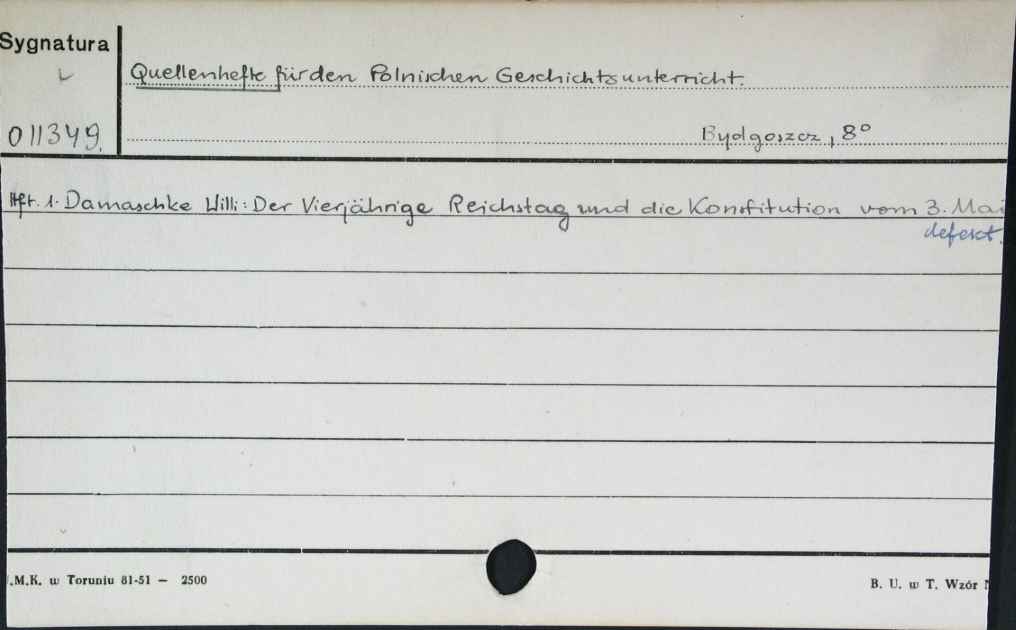 Sygnatura
Quellenhefte für den Polnischen Geschichtsunterricht.
011349.
Bydgoszcz, 8°
Hft. 1. Damaschke Willi: Der Vierjährige Reichstag und die Konstitution vom 3. Mai
defekt.
.M.K. w Toruniu 81-51 — 2500
B. U. w T. Wzór